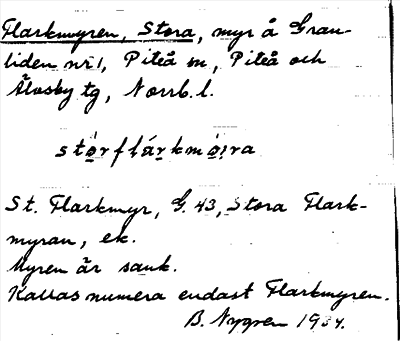 Flarkmyren, Stora, myr å Gran-
liden nr 1, Piteå sn, Piteå och
Älvsby tg, Norrb. l.
stórflárkmóira
St. Flarkmyr, G. 43, Stora Flark-
myran, ek.
Myren är sank.
Kallas numera endast Flarkmyren.
B. Nygren 1934.